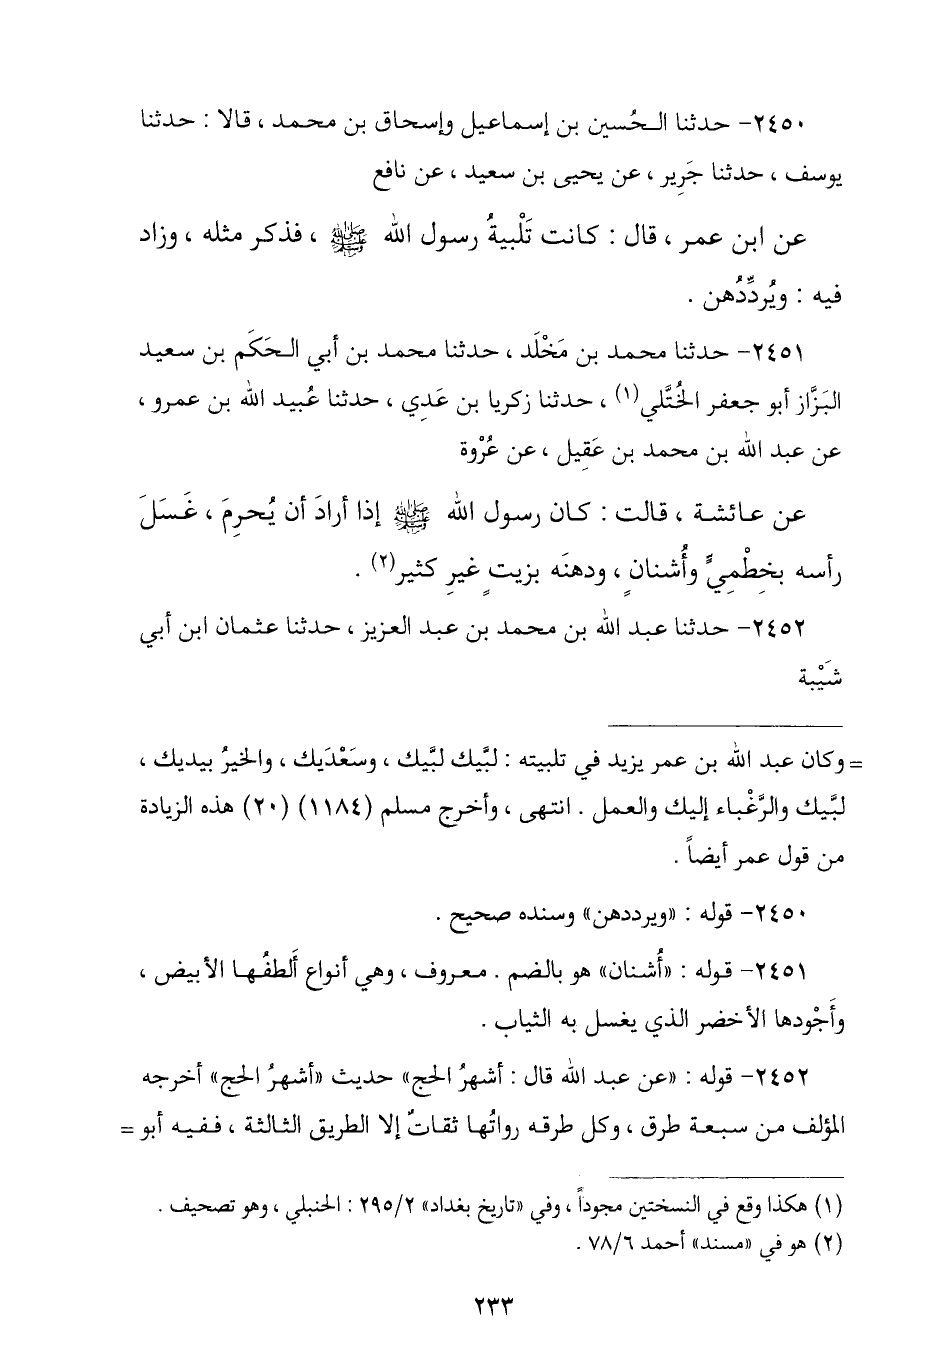 ٢٤٥٠- حدثنا الحُسين بن إسماعيل وإسحاق بن محمد ، قالا : حدثنا
يوسف ، حدثنا جَرِير ، عن يحيى بن سعيد ، عن نافع
عن ابن عمر ، قال : كانت تَلْبيةُ رسول الله ﷺ ، فذكر مثله ، وزاد
فيه : ويُردِّدُهن .
٢٤٥١- حدثنا محمد بن مَخْلَد ، حدثنا محمد بن أبي الحَكَم بن سعيد
البَزَّاز أبو جعفر الخُتَّلي(١) ، حدثنا زكريا بن عَدِي ، حدثنا عُبيد الله بن عمرو ،
عن عبد الله بن محمد بن عَقِيل ، عن عُرْوة
عن عائشة ، قالت : كان رسول الله ﷺ إذا أرادَ أن يُحرِمَ ، غَسَلَ
رأسه بخِطْمِيٍّ وأُشنانٍ ، ودهنَه بزيتٍ غيرِ كثير(٢) .
٢٤٥٢- حدثنا عبد الله بن محمد بن عبد العزيز ، حدثنا عثمان ابن أبي
شَيْبة
= وكان عبد الله بن عمر يزيد في تلبيته : لبَّيك لبَّيك ، وسَعْدَيك ، والخيرُ بيديك ،
لبَّيك والرَّغْباء إليك والعمل . انتهى ، وأخرج مسلم (١١٨٤) (٢٠) هذه الزيادة
من قول عمر أيضاً .
٢٤٥٠- قوله : «ويرددهن» وسنده صحيح .
٢٤٥١- قوله : «أُشنان» هو بالضم . معروف ، وهي أنواع أَلطفُها الأبيض ،
وأَجْودها الأخضر الذي يغسل به الثياب .
٢٤٥٢- قوله : «عن عبد الله قال : أشهرُ الحج» حديث «أشهرُ الحج» أخرجه
المؤلف من سبعة طرق ، وكل طرقه رواتُها ثقاتٌ إلا الطريق الثالثة ، ففيه أبو =
(١) هكذا وقع في النسختين مجوداً ، وفي «تاريخ بغداد» ٢٩٥/٢ : الحنبلي ، وهو تصحيف .
(٢) هو في «مسند» أحمد ٧٨/٦ .
٢٣٣